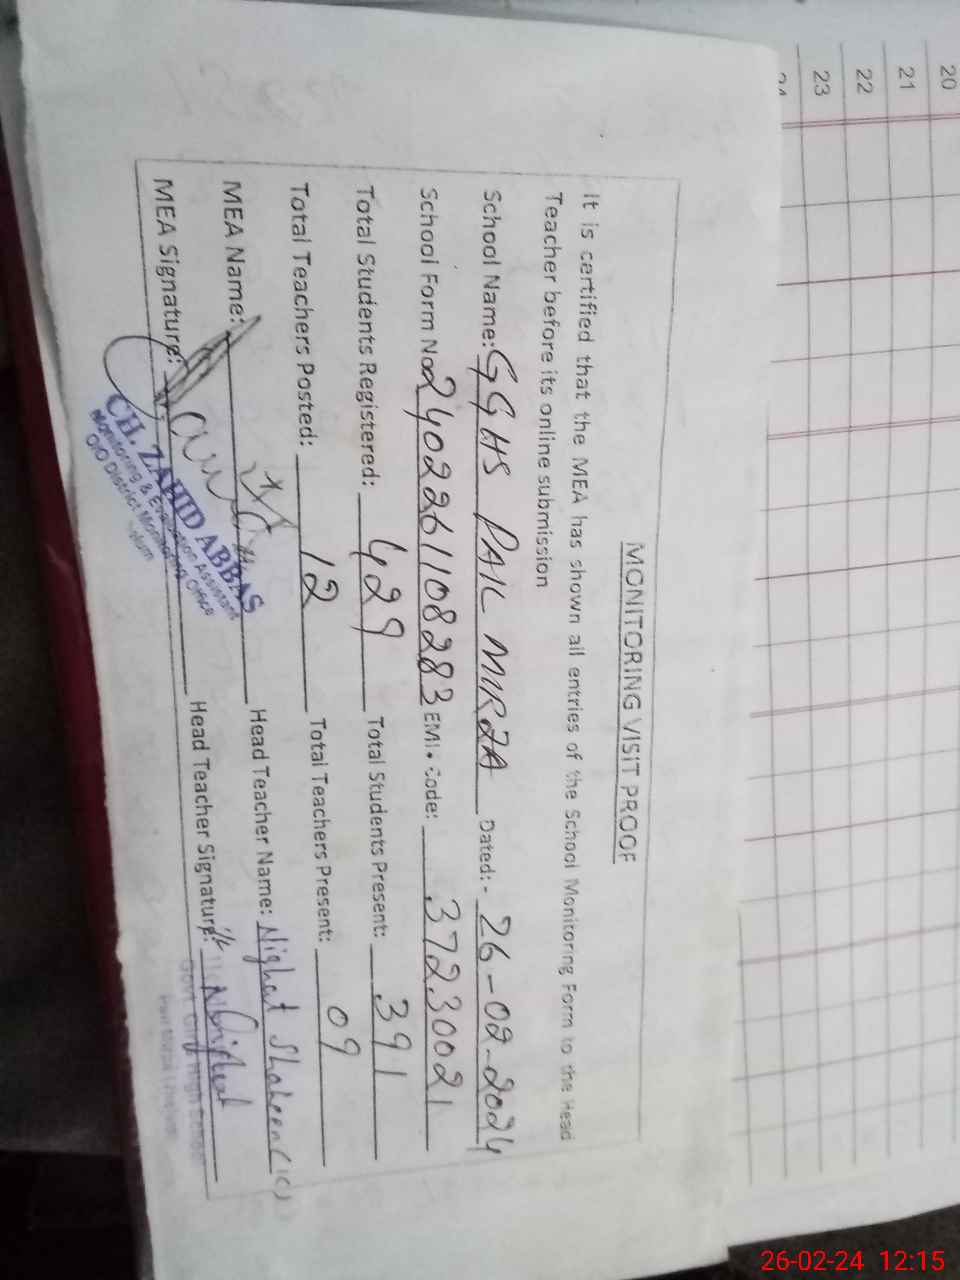 MONITORING VISIT PROOF
It is certified that the MEA has shown all entries of the School Monitoring Form to the Head
Teacher before its online submission
School Name: GGHS PAIL MIRZA Dated: - 26-02-2024
School Form No: 2402261108283 EMIS Code: 37230021
Total Students Registered: 429 Total Students Present: 391
Total Teachers Posted: 12 Total Teachers Present: 09
MEA Name: Head Teacher Name: Nighat Shaheen (IC)
MEA Signature: Head Teacher Signature: Nighat
CH. ZAHID ABBAS
Monitoring & Evaluation Assistant
O/O District Monitoring Office
Govt. Girls High School
20
21
22
23
24
26-02-24 12:15